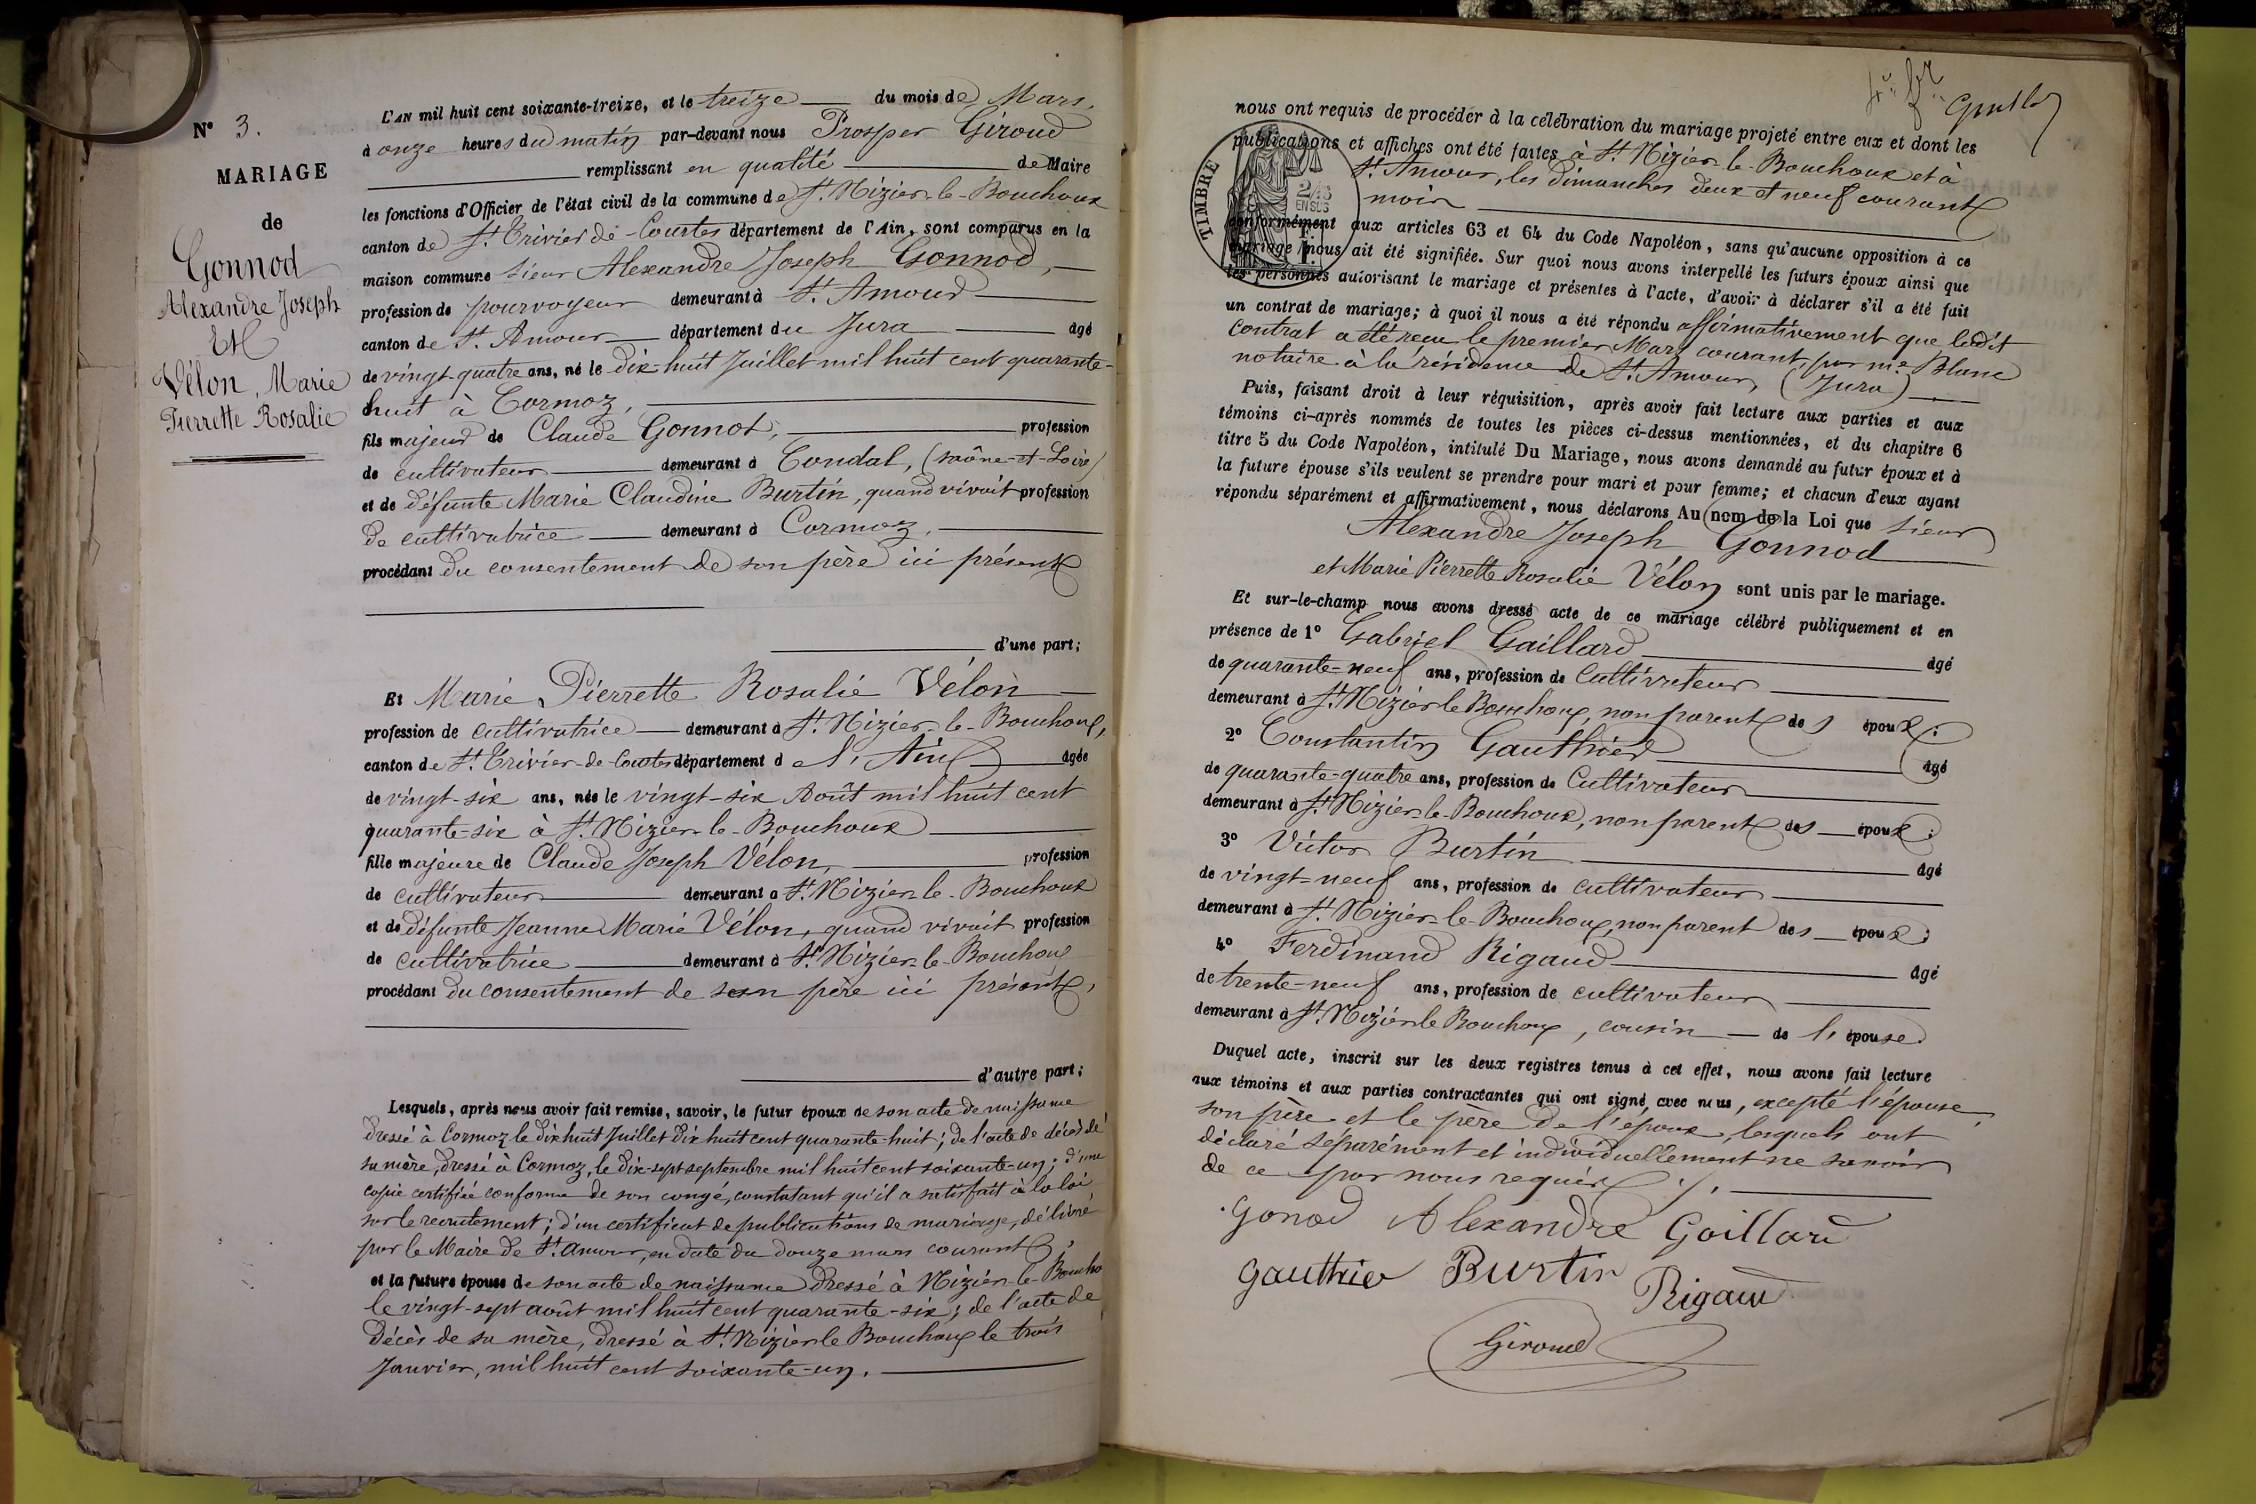 N° 3.
MARIAGE
de
Gonnod
Alexandre Joseph
Et
Vélon, Marie
Pierrette Rosalie
L'AN mil huit cent soixante-treize, et le treize du mois de Mars,
à onze heures du matin par-devant nous Prosper Giroud
remplissant en qualité de Maire
les fonctions d'Officier de l'état civil de la commune de St. Nizier-le-Bouchoux
canton de St. Trivier de Courtes département de l'Ain, sont comparus en la
maison commune sieur Alexandre Joseph Gonnod,
profession de pourvoyeur demeurant à St. Amour
canton de St. Amour département du Jura âgé
de vingt-quatre ans, né le dix-huit Juillet mil huit cent quarante-
huit à Cormoz,
fils majeur de Claude Gonnot, profession
de cultivateur demeurant à Condal, (Saône-et-Loire)
et de défunte Marie Claudine Burtin, quand vivait profession
de cultivatrice demeurant à Cormoz,
procédant du consentement de son père ici présent
d'une part;
Et Marie Pierrette Rosalie Vélon
profession de cultivatrice demeurant à St. Nizier-le-Bouchoux,
canton de St. Trivier-de-Courtes département de l'Ain âgée
de vingt-six ans, née le vingt-six Août mil huit cent
quarante-six à St. Nizier-le-Bouchoux
fille majeure de Claude Joseph Vélon, profession
de cultivateur demeurant à St. Nizier-le-Bouchoux
et de défunte Jeanne Marie Vélon, quand vivait profession
de cultivatrice demeurant à St. Nizier-le-Bouchoux
procédant du consentement de son père ici présent,
d'autre part;
Lesquels, après nous avoir fait remise, savoir, le futur époux de son acte de naissance
dressé à Cormoz le dix huit Juillet dix huit cent quarante-huit; de l'acte de décès de
sa mère, dressé à Cormoz, le dix-sept septembre mil huit cent soixante-un; d'une
copie certifiée conforme de son congé, constatant qu'il a satisfait à la loi
sur le recrutement; d'un certificat de publications de mariage, délivré
par le Maire de St. Amour, en date du douze mars courant;
et la future épouse de son acte de naissance dressé à Nizier-le-Boucho
le vingt-sept août mil huit cent quarante-six; de l'acte de
décès de sa mère, dressé à St. Nizier le Bouchoux le trois
Janvier, mil huit cent soixante-un.
nous ont requis de procéder à la célébration du mariage projeté entre eux et dont les
publications et affiches ont été faites à St. Nizier-le-Bouchoux et à
St. Amour, les dimanches deux et neuf courant
mois
TIMBRE
2/10
EN SUS
conformément aux articles 63 et 64 du Code Napoléon, sans qu'aucune opposition à ce
mariage nous ait été signifiée. Sur quoi nous avons interpellé les futurs époux ainsi que
les personnes autorisant le mariage et présentes à l'acte, d'avoir à déclarer s'il a été fait
un contrat de mariage; à quoi il nous a été répondu affirmativement que ledit
contrat a été reçu le premier Mars courant, par me Blanc
notaire à la résidence de St. Amour, (Jura)
Puis, faisant droit à leur réquisition, après avoir fait lecture aux parties et aux
témoins ci-après nommés de toutes les pièces ci-dessus mentionnées, et du chapitre 6
titre 5 du Code Napoléon, intitulé Du Mariage, nous avons demandé au futur époux et à
la future épouse s'ils veulent se prendre pour mari et pour femme; et chacun d'eux ayant
répondu séparément et affirmativement, nous déclarons Au nom de la Loi que sieur
Alexandre Joseph Gonnod
et Marie Pierrette Rosalie Vélon sont unis par le mariage.
Et sur-le-champ nous avons dressé acte de ce mariage célébré publiquement et en
présence de 1° Gabriel Gaillard âgé
de quarante-neuf ans, profession de Cultivateur
demeurant à St. Nizier le Bouchoux, non parent des époux;
2° Constantin Gauthier âgé
de quarante-quatre ans, profession de Cultivateur
demeurant à St. Nizier-le-Bouchoux, non parent des époux;
3° Victor Burtin âgé
de vingt-neuf ans, profession de cultivateur
demeurant à St. Nizier-le-Bouchoux, non parent des époux;
4° Ferdinand Rigaud âgé
de trente-neuf ans, profession de cultivateur
demeurant à St. Nizier le Bouchoux, cousin de l'épouse.
Duquel acte, inscrit sur les deux registres tenus à cet effet, nous avons fait lecture
aux témoins et aux parties contractantes qui ont signé avec nous, excepté l'épouse,
son père et le père de l'époux, lesquels ont
déclaré séparément et individuellement ne savoir
de ce par nous requis
Gonod Alexandre Gaillard
Gauthier Burtin
Rigaud
Giroud